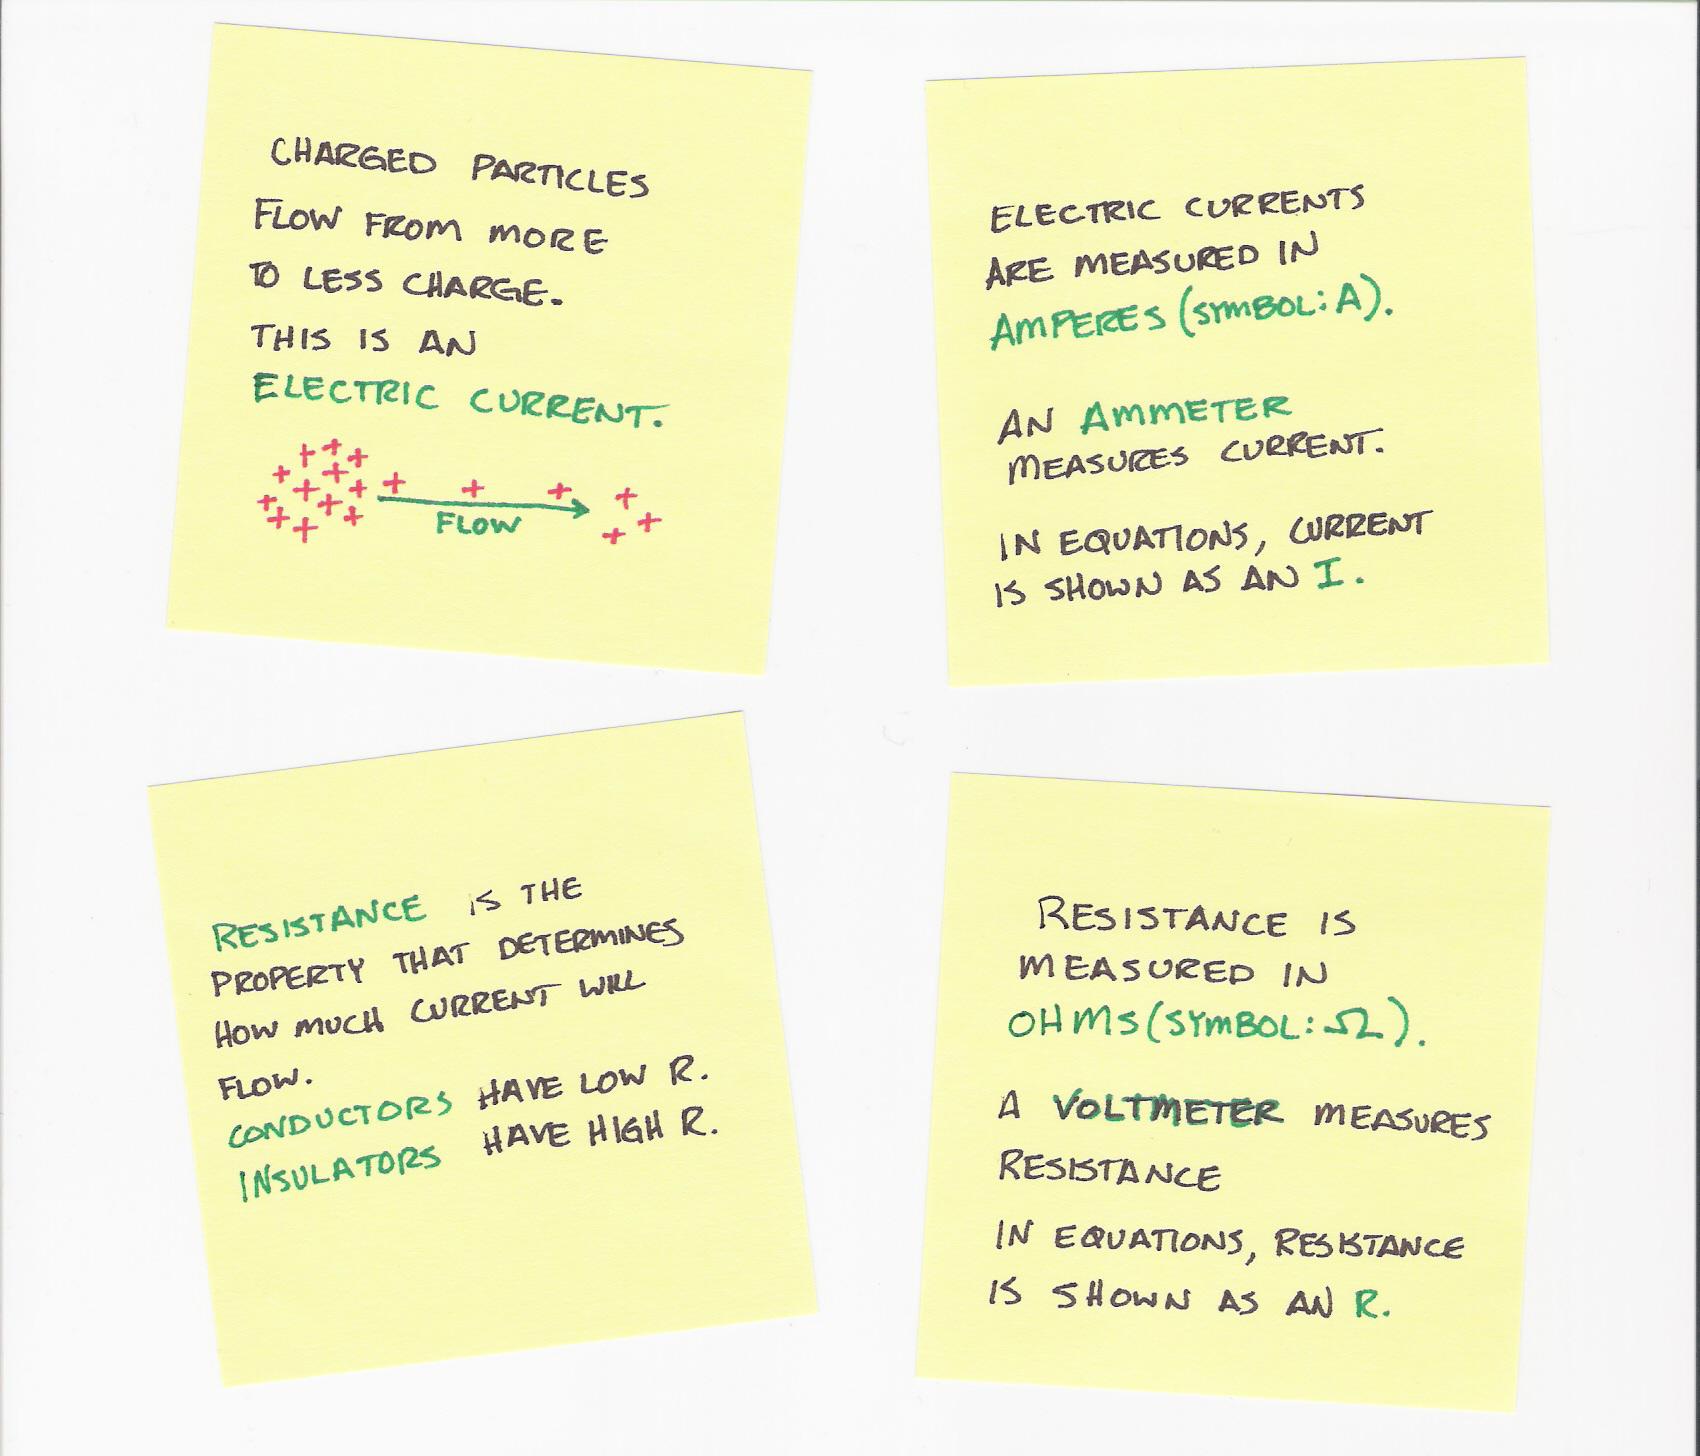 CHARGED PARTICLES
FLOW FROM MORE
TO LESS CHARGE.
THIS IS AN
ELECTRIC CURRENT.
+ + + + + + + + + + + + + + + + + + +
FLOW
ELECTRIC CURRENTS
ARE MEASURED IN
AMPERES (SYMBOL: A).
AN AMMETER
MEASURES CURRENT.
IN EQUATIONS, CURRENT
IS SHOWN AS AN I.
RESISTANCE IS THE
PROPERTY THAT DETERMINES
HOW MUCH CURRENT WILL
FLOW.
CONDUCTORS HAVE LOW R.
INSULATORS HAVE HIGH R.
RESISTANCE IS
MEASURED IN
OHMS (SYMBOL: Ω).
A VOLTMETER MEASURES
RESISTANCE
IN EQUATIONS, RESISTANCE
IS SHOWN AS AN R.